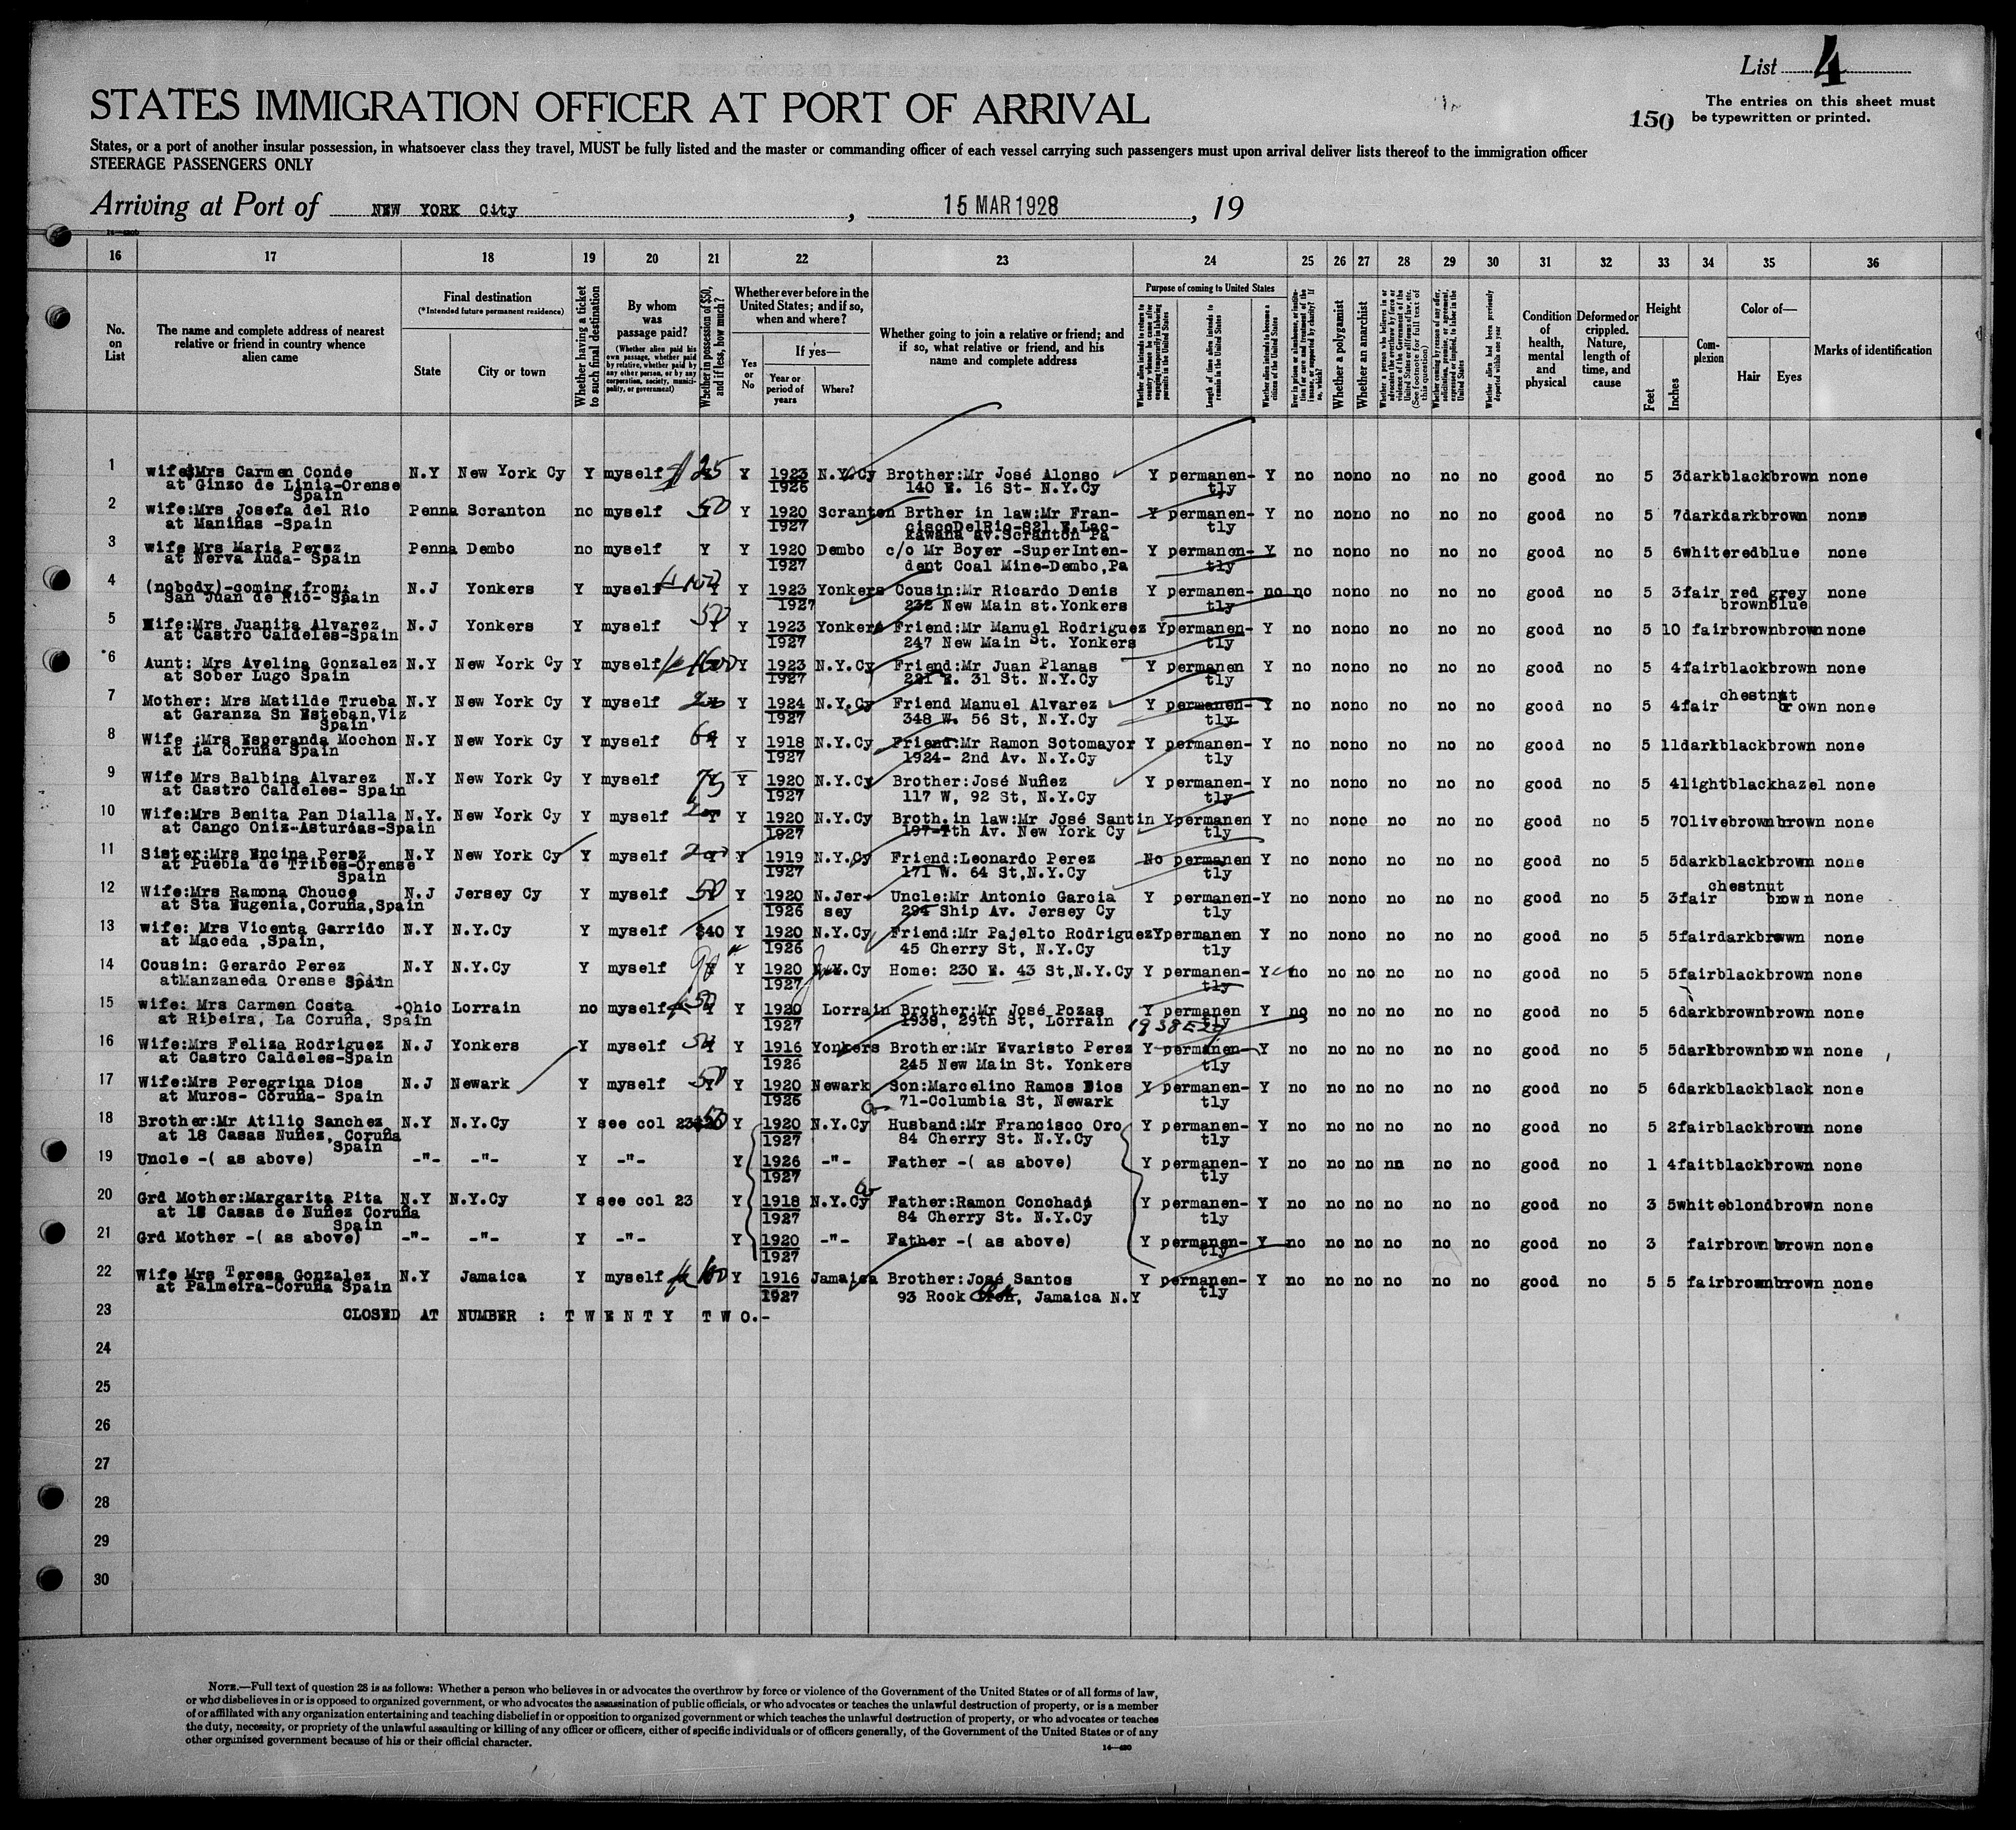 List 4
STATES IMMIGRATION OFFICER AT PORT OF ARRIVAL
150
The entries on this sheet must
be typewritten or printed.
States, or a port of another insular possession, in whatsoever class they travel, MUST be fully listed and the master or commanding officer of each vessel carrying such passengers must upon arrival deliver lists thereof to the immigration officer
STEERAGE PASSENGERS ONLY
Arriving at Port of NEW YORK City, 15 MAR 1928, 19
16 17 18 19 20 21 22 23 24 25 26 27 28 29 30 31 32 33 34 35 36
No. on List
The name and complete address of nearest relative or friend in country whence alien came
Final destination
(*Intended future permanent residence)
State
City or town
Whether having a ticket to such final destination
By whom was passage paid?
(Whether alien paid his own passage, whether paid by relative, whether paid by any other person, or by any corporation, society, municipality, or government)
Whether in possession of $50, and if less, how much?
Whether ever before in the United States; and if so, when and where?
Yes or No
If yes—
Year or period of years
Where?
Whether going to join a relative or friend; and if so, what relative or friend, and his name and complete address
Purpose of coming to United States
Length of time alien intends to remain in the United States
Whether alien intends to become a citizen of the United States
Whether a polygamist
Whether an anarchist
Condition of health, mental and physical
Deformed or crippled. Nature, length of time, and cause
Height
Feet
Inches
Complexion
Color of—
Hair
Eyes
Marks of identification
1 wife:Mrs Carmen Conde N.Y New York Cy Y myself 25 Y 1923 N.Y.Cy Brother:Mr José Alonso Y permanen- Y no no no no no no good no 5 3 dark black brown none
at Ginzo de Linia-Orense 1926 140 E. 16 St- N.Y.Cy tly
Spain
2 wife:Mrs Josefa del Rio Penna Scranton no myself 50 Y 1920 Scranton Brther in law:Mr Fran- Y permanen- Y no no no no no no good no 5 7 dark dark brown none
at Maniñas -Spain 1927 ciscoDelRio-821 E.Lac- tly
kawana av.Scranton Pa
3 wife Mrs Maria Perez Penna Dembo no myself Y Y 1920 Dembo c/o Mr Boyer -SuperInten- Y permanen- Y no no no no no no good no 5 6 white red blue none
at Nerva Auda- Spain 1927 dent Coal Mine-Dembo,Pa tly
4 (nobody)-coming from: N.J Yonkers Y myself 150 Y 1923 Yonkers Cousin:Mr Ricardo Denis Y permanen- no no no no no no no good no 5 3 fair red grey none
San Juan de Rio- Spain 1927 232 New Main st.Yonkers tly brown blue
5 Wife:Mrs Juanita Alvarez N.J Yonkers Y myself 50 Y 1923 Yonkers Friend:Mr Manuel Rodriguez Y permanen- Y no no no no no no good no 5 10 fair brown brown none
at Castro Caldeles-Spain 1927 247 New Main St. Yonkers tly
*6 Aunt: Mrs Avelina Gonzalez N.Y New York Cy Y myself Y 1923 N.Y.Cy Friend:Mr Juan Planas Y permanen Y no no no no no no good no 5 4 fair black brown none
at Sober Lugo Spain 1927 221 E. 31 St. N.Y.Cy tly
7 Mother: Mrs Matilde Trueba N.Y New York Cy Y myself Y 1924 N.Y.Cy Friend Manuel Alvarez Y permanen- Y no no no no no no good no 5 4 fair chestnut brown none
at Garanza Sn Esteban,Viz 1927 348 W. 56 St, N.Y.Cy tly
Spain
8 Wife ;Mrs Esperanda Mochon N.Y New York Cy Y myself 60 Y 1918 N.Y.Cy Friend:Mr Ramon Sotomayor Y permanen- Y no no no no no no good no 5 11 dark black brown none
at La Coruña Spain 1927 1924- 2nd Av. N.Y.Cy tly
9 Wife Mrs Balbina Alvarez N.Y New York Cy Y myself 75 Y 1920 N.Y.Cy Brother:José Nuñez Y permanen- Y no no no no no no good no 5 4 light black hazel none
at Castro Caldeles- Spain 1927 117 W, 92 St, N.Y.Cy tly
10 Wife:Mrs Benita Pan Dialla N.Y. New York Cy Y myself Y 1920 N.Y.Cy Broth.in law:Mr José Santin Y permanen Y no no no no no no good no 5 7 Olive brown brown none
at Cango Oniz-Asturias-Spain 1927 197-7th Av. New York Cy tly
11 Sister:Mrs Encina Perez N.Y New York Cy Y myself Y 1919 N.Y.Cy Friend:Leonardo Perez No permanen Y no no no no no no good no 5 5 dark black brown none
at Puebla de Tribes-Orense 1927 171 W. 64 St,N.Y.Cy tly
Spain
12 Wife:Mrs Ramona Chouce N.J Jersey Cy Y myself 50 Y 1920 N.Jer- Uncle:Mr Antonio Garcia Y permanen- Y no no no no no no good no 5 3 fair chestnut brown none
at Sta Eugenia,Coruña,Spain 1926 sey 294 Ship Av. Jersey Cy tly
13 wife: Mrs Vicenta Garrido N.Y N.Y.Cy Y myself $40 Y 1920 N.Y.Cy Friend:Mr Pajelto Rodriguez Y permanen Y no no no no no no good no 5 5 fair dark brown none
at Maceda ,Spain, 1926 45 Cherry St, N.Y.Cy tly
14 Cousin: Gerardo Perez N.Y N.Y.Cy Y myself 90 Y 1920 N.Y.Cy Home: 230 E. 43 St,N.Y.Cy Y permanen- Y no no no no no no good no 5 5 fair black brown none
atManzaneda Orense Spain 1927 tly
15 wife: Mrs Carmen Costa -Ohio Lorrain no myself 50 Y 1920 Lorrain Brother:Mr José Pozas Y permanen Y no no no no no no good no 5 6 dark brown brown none
at Ribeira, La Coruña, Spain 1927 1938, 29th St, Lorrain tly
16 Wife:Mrs Feliza Rodriguez N.J Yonkers Y myself Y 1916 Yonkers Brother:Mr Evaristo Perez Y permanen- Y no no no no no no good no 5 5 dark brown brown none
at Castro Caldeles-Spain 1926 245 New Main St. Yonkers tly
17 Wife:Mrs Peregrina Dios N.J Newark Y myself 50 Y 1920 Newark Son:Marcelino Ramos Dios Y permanen- Y no no no no no no good no 5 6 dark black black none
at Muros- Coruña- Spain 1926 71-Columbia St, Newark tly
18 Brother:Mr Atilio Sanchez N.Y N.Y.Cy Y see col 23 50 Y 1920 N.Y.Cy Husband:Mr Francisco Oro Y permanen- Y no no no no no no good no 5 2 fair black brown none
at 18 Casas Nuñez, Coruña 1927 84 Cherry St. N.Y.Cy tly
Spain
19 Uncle -( as above) -"- -"- Y -"- Y 1926 -"- Father -( as above) Y permanen- Y no no no no no no good no 1 4 fait black brown none
1927 tly
20 Grd Mother:Margarita Pita N.Y N.Y.Cy Y see col 23 Y 1918 N.Y.Cy Father:Ramon Conchado Y permanen- Y no no no no no no good no 3 5 white blond brown none
at 18 Casas de Nuñez Coruña 1927 84 Cherry St. N.Y.Cy tly
Spain
21 Grd Mother -( as above) -"- -"- Y -"- Y 1920 -"- Father -( as above) Y permanen- Y no no no no no no good no 3 fair brown brown none
1927 tly
22 Wife Mrs Teresa Gonzalez N.Y Jamaica Y myself 100 Y 1916 Jamaica Brother:José Santos Y pernanen- Y no no no no no no good no 5 5 fair brown brown none
at Palmeira-Coruña Spain 1927 93 Rock, Jamaica N.Y tly
23 CLOSED AT NUMBER : T W E N T Y T W O.-
24
25
26
27
28
29
30
NOTE.—Full text of question 28 is as follows: Whether a person who believes in or advocates the overthrow by force or violence of the Government of the United States or of all forms of law,
or who disbelieves in or is opposed to organized government, or who advocates the assassination of public officials, or who advocates or teaches the unlawful destruction of property, or is a member
of or affiliated with any organization entertaining and teaching disbelief in or opposition to organized government or which teaches the unlawful destruction of property, or who advocates or teaches
the duty, necessity, or propriety of the unlawful assaulting or killing of any officer or officers, either of specific individuals or of officers generally, of the Government of the United States or of any
other organized government because of his or their official character.